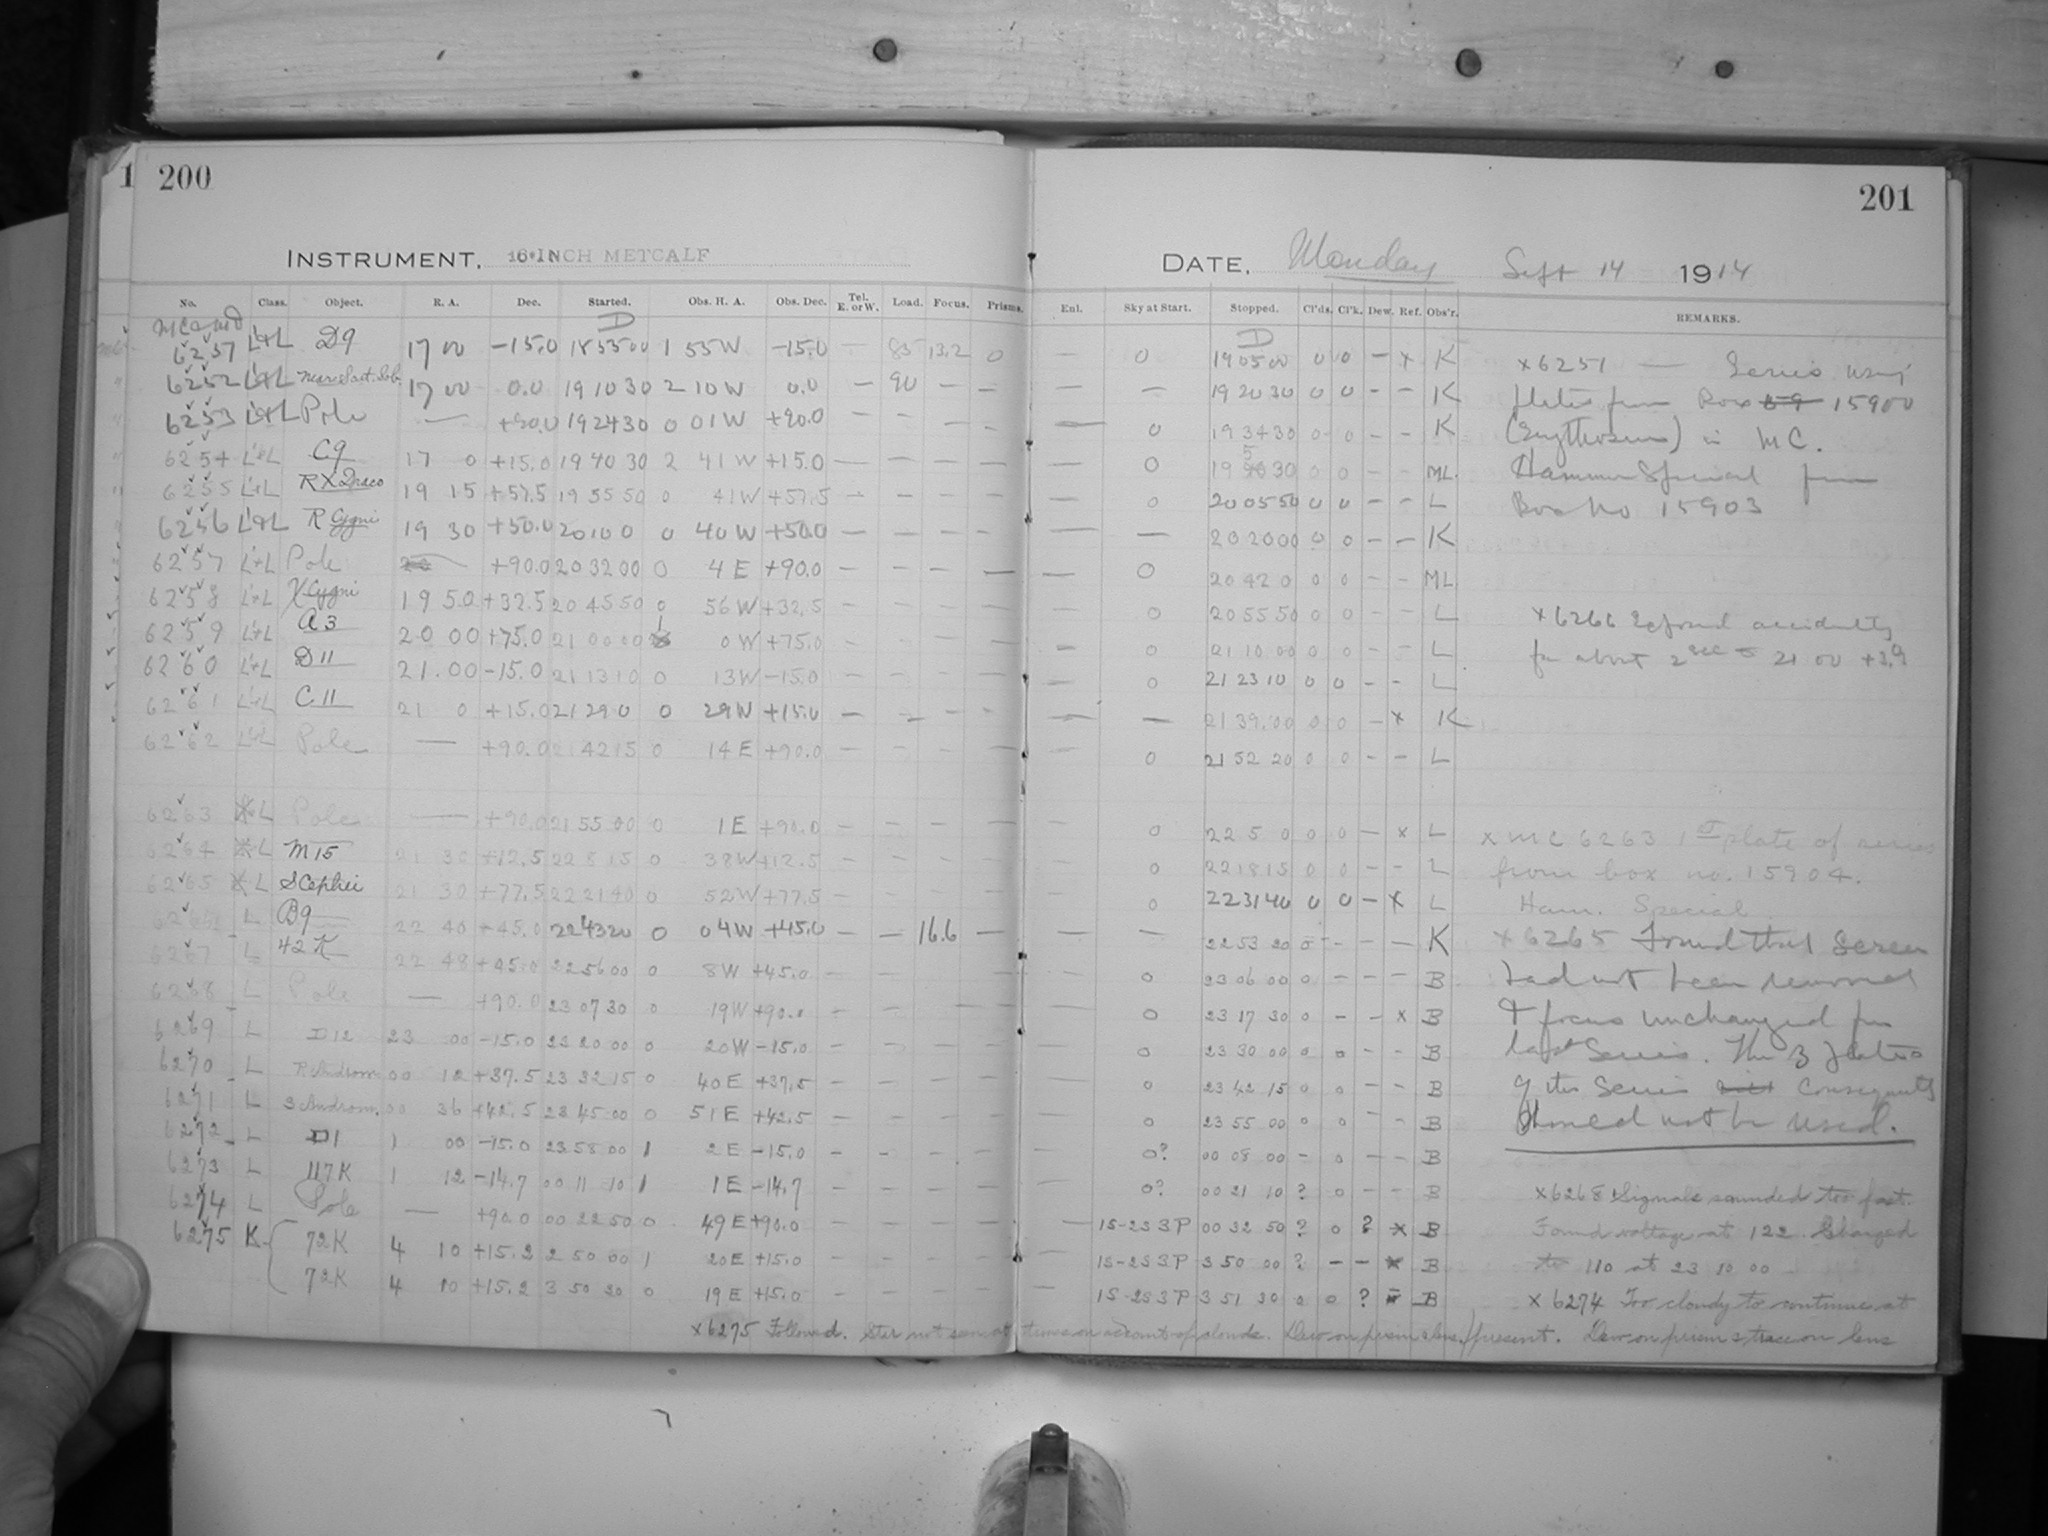 1 200
INSTRUMENT, 16-INCH METCALF
No. Class. Object. R. A. Dec. Started. Obs. H. A. Obs. Dec. Tel. E. or W. Load. Focus. Prisms.
D
6251 L+L D9 17 00 -15.0 18 55 00 1 55 W -15.0 — 85 13.2 0
6252 L+L 17 00 0.0 19 10 30 2 10 W 0.0 — 90 — —
6253 L+L Pole — +90.0 19 24 30 0 01 W +90.0 — — — —
6254 L+L C9 17 0 +15.0 19 40 30 2 41 W +15.0 — — — —
6255 L+L RX Draco 19 15 +57.5 19 55 50 0 41 W +57.5 — — — —
6256 L+L R Cygni 19 30 +50.0 20 10 0 0 40 W +50.0 — — — —
6257 L+L Pole — +90.0 20 32 00 0 4 E +90.0 — — — —
6258 L+L X Cygni 19 50 +32.5 20 45 50 0 56 W +32.5 — — — —
6259 L+L A3 20 00 +75.0 21 00 00 1 0 W +75.0 — — — —
6260 L+L D11 21.00 -15.0 21 13 10 0 13 W -15.0 — — — —
6261 L+L C11 21 0 +15.0 21 29 0 0 29 W +15.0 — — — —
6262 L+L Pole — +90.0 21 42 15 0 14 E +90.0 — — — —
6263 L Pole — +90.0 21 55 00 0 1 E +90.0 — — — —
6264 L M15 21 30 +12.5 22 8 15 0 38 W +12.5 — — — —
6265 L S Cephei 21 30 +77.5 22 21 40 0 52 W +77.5 — — — —
6266 L B9 22 40 +45.0 22 43 20 0 04 W +45.0 — — 16.6 —
6267 L 42 K 22 48 +45.0 22 56 00 0 8 W +45.0 — — — —
6268 L Pole — +90.0 23 07 30 0 19 W +90.0 — — — —
6269 L D12 23 00 -15.0 23 20 00 0 20 W -15.0 — — — —
6270 L R Androm. 00 12 +37.5 23 32 15 0 40 E +37.5 — — — —
6271 L S Androm. 00 36 +42.5 23 45 00 0 51 E +42.5 — — — —
6272 L D1 1 00 -15.0 23 58 00 1 2 E -15.0 — — — —
6273 L 117 K 1 12 -14.7 00 11 10 1 1 E -14.7 — — — —
6274 L Pole — +90.0 00 22 50 0 49 E +90.0 — — — —
6275 K 72K 4 10 +15.2 2 50 00 1 20 E +15.0 — — — —
72K 4 10 +15.2 3 50 30 0 19 E +15.0 — — — —
201
DATE, Monday Sept 14 1914
Enl. Sky at Start. Stopped. Cl'ds. Cl'k. Dew. Ref. Obs'r. REMARKS.
D
— 0 19 05 00 0 0 — x K x6251 — Series using
— 19 20 30 0 0 — — K plates from Box 59 15900
— 0 19 34 30 0 0 — — K (Erythrosin) in MC.
0 19 50 30 0 0 — — ML Hammer Special from
0 20 05 50 0 0 — — L Box No 15903
— — 20 20 00 0 0 — — K
— 0 20 42 0 0 0 — — ML
— 0 20 55 50 0 0 — — L x6266 accidently
— 0 21 10 00 0 0 — — L for about 2 sec 21 00
— 0 21 23 10 0 0 — — L
— — 21 39 00 0 0 — x K
— 0 21 52 20 0 0 — — L
0 22 5 0 0 0 — x L x MC 6263 1st plate of series
0 22 18 15 0 0 — — L from box no. 15904.
0 22 31 40 0 0 — x L Ham. Special
— — 22 53 20 0 — — — K x6265 Found that Screen
— 0 23 06 00 0 — — — B had not been removed
— 0 23 17 30 0 — — x B & focus unchanged for
— 0 23 30 00 0 0 — — B last Series. The 3 plates
— 0 23 42 15 0 0 — — B of the Series will Consequently
— 0 23 55 00 0 0 — — B should not be used.
— 0? 00 08 00 — 0 — — B
— 0? 00 21 10 ? 0 — — B x6268 Signals sounded too fast.
— 1S-2S3P 00 32 50 ? 0 ? x B Found voltage at 122. Changed
1S-2S3P 3 50 00 ? — — x B to 110 at 23 10 00
— 1S-2S3P 3 51 30 0 0 ? B x 6274 Too cloudy to continue at
x6275 Followed. Star not seen at times on account of clouds. Dew on prism &amp; lens. / present. Dew on prism &amp; trace on lens